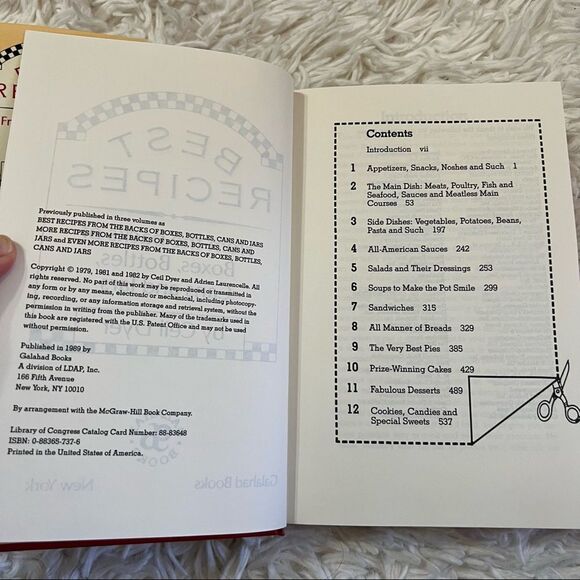 Previously published in three volumes as
BEST RECIPES FROM THE BACKS OF BOXES, BOTTLES, CANS AND JARS
MORE RECIPES FROM THE BACKS OF BOXES, BOTTLES, CANS AND
JARS and EVEN MORE RECIPES FROM THE BACKS OF BOXES, BOTTLES,
CANS AND JARS
Copyright © 1979, 1981 and 1982 by Ceil Dyer and Adrien Laurencelle. All
rights reserved. No part of this work may be reproduced or transmitted in
any form or by any means, electronic or mechanical, including photocopy-
ing, recording, or any information storage and retrieval system, without the
permission in writing from the publisher. Many of the trademarks used in
this book are registered with the U.S. Patent Office and may not be used
without permission.
Published in 1989 by
Galahad Books
A division of LDAP, Inc.
166 Fifth Avenue
New York, NY 10010
By arrangement with the McGraw-Hill Book Company.
Library of Congress Catalog Card Number: 88-83648
ISBN: 0-88365-737-6
Printed in the United States of America.
BEST
RECIPES
Boxes, Bottles,
by Ceil Dyer
Galahad Books
New York
Contents
Introduction vii
1 Appetizers, Snacks, Noshes and Such 1
2 The Main Dish: Meats, Poultry, Fish and
Seafood, Sauces and Meatless Main
Courses 53
3 Side Dishes: Vegetables, Potatoes, Beans,
Pasta and Such 197
4 All-American Sauces 242
5 Salads and Their Dressings 253
6 Soups to Make the Pot Smile 299
7 Sandwiches 315
8 All Manner of Breads 329
9 The Very Best Pies 385
10 Prize-Winning Cakes 429
11 Fabulous Desserts 489
12 Cookies, Candies and
Special Sweets 537